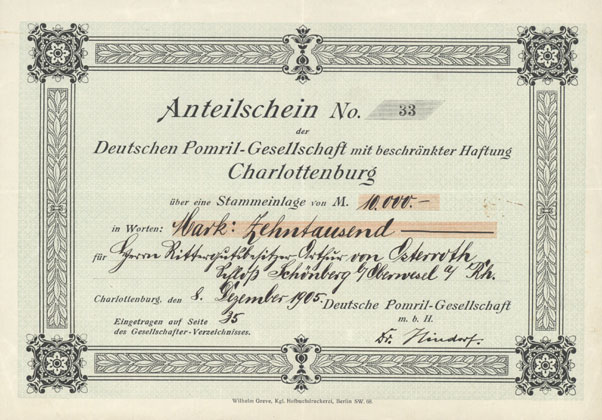 Anteilschein No. 33
der
Deutschen Pomril-Gesellschaft mit beschränkter Haftung
Charlottenburg
über eine Stammeinlage von M. 10.000.-
in Worten: Mark: Zehntausend
für Herrn Rittergutsbesitzer Arthur von Osterroth
Schloß Schönberg b/Oberwesel a/ Rh.
Charlottenburg, den 8. Dezember 1905.
Deutsche Pomril-Gesellschaft
m. b. H.
Eingetragen auf Seite 35
des Gesellschafter-Verzeichnisses.
Dr. Hindorf.
Wilhelm Greve, Kgl. Hofbuchdruckerei, Berlin SW. 68.